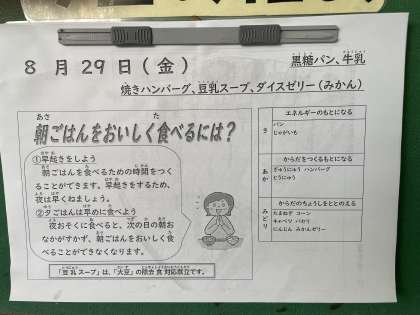 8月29日(金)
黒糖パン、牛乳
焼きハンバーグ、豆乳スープ、ダイスゼリー(みかん)
朝ごはんをおいしく食べるには?
①早起きをしよう
朝ごはんを食べるための時間をつく
ることができます。早起きをするため、
夜は早くねましょう。
②夕ごはんは早めに食べよう
夜おそくに食べると、次の日の朝お
なかがすかず、朝ごはんをおいしく食
べることができなくなります。
「豆乳スープ」は、「大豆」の除去食対応献立です。
エネルギーのもとになる
き
パン
じゃがいも
からだをつくるもとになる
あか
ぎゅうにゅう ハンバーグ
とうにゅう
からだのちょうしをととのえる
みどり
たまねぎ コーン
キャベツ パセリ
にんじん みかんゼリー